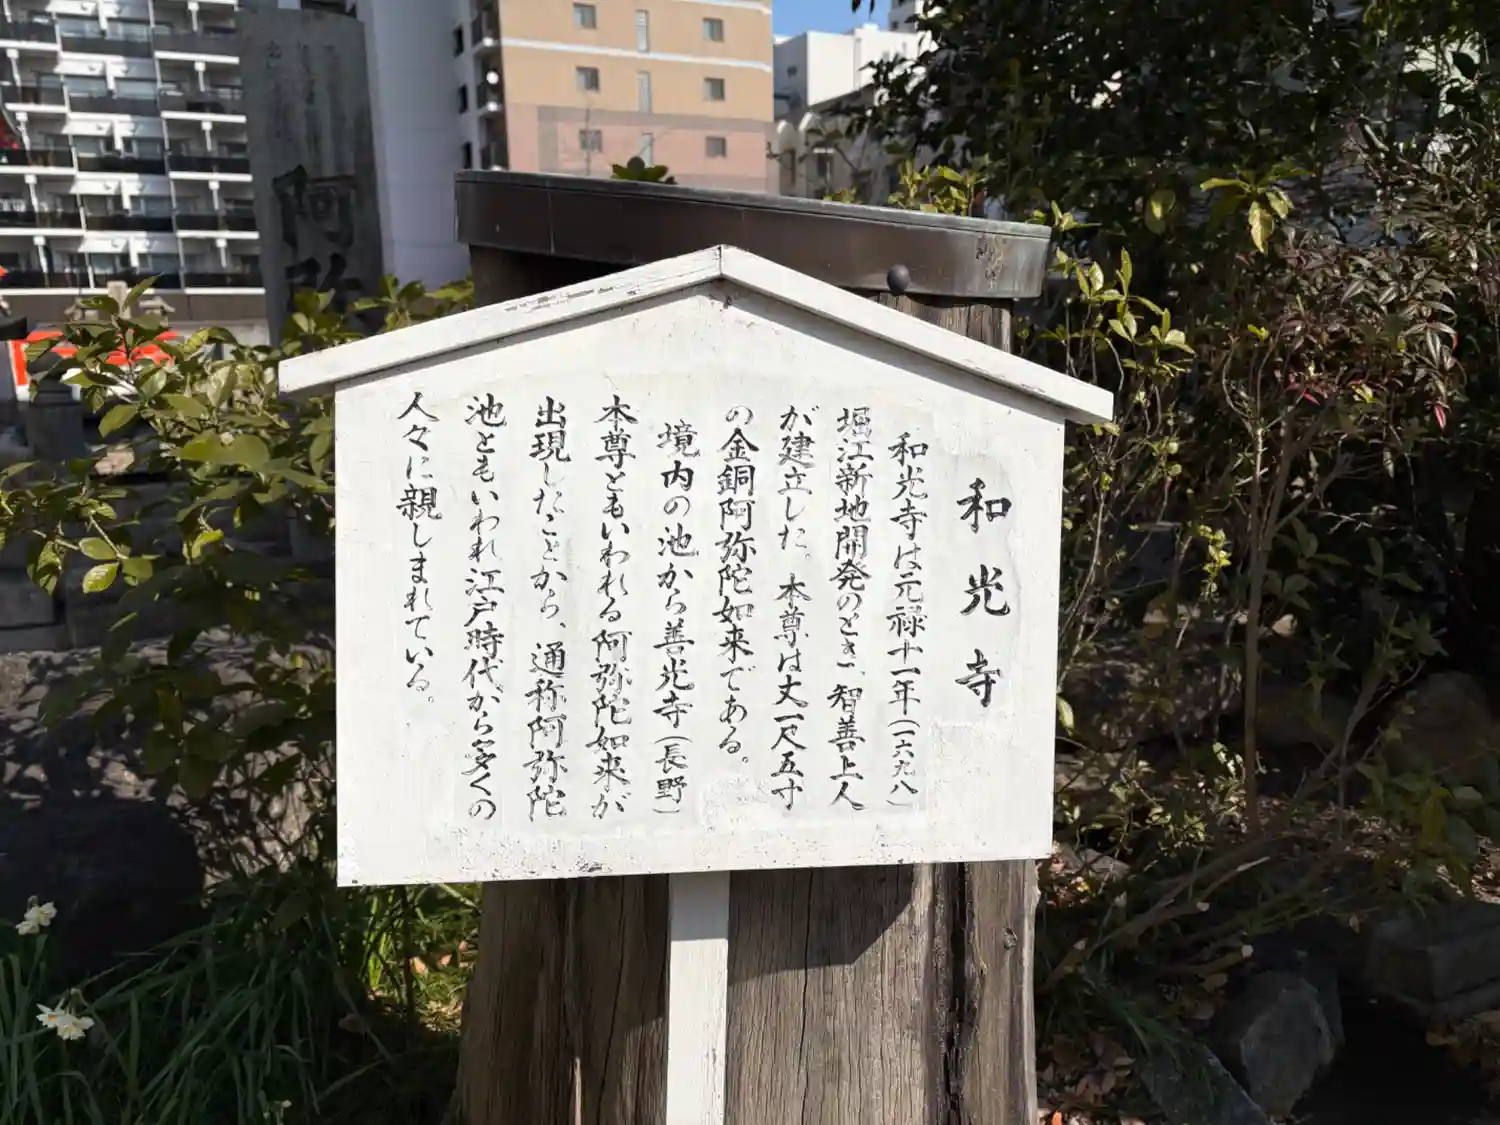 和光寺
和光寺は元禄十一年(一六九八)
堀江新地開発のとき、智善上人
が建立した。本尊は丈一尺五寸
の金銅阿弥陀如来である。
境内の池から善光寺(長野)
本尊ともいわれる阿弥陀如来が
出現したことから、通称阿弥陀
池ともいわれ江戸時代から多くの
人々に親しまれている。
阿弥